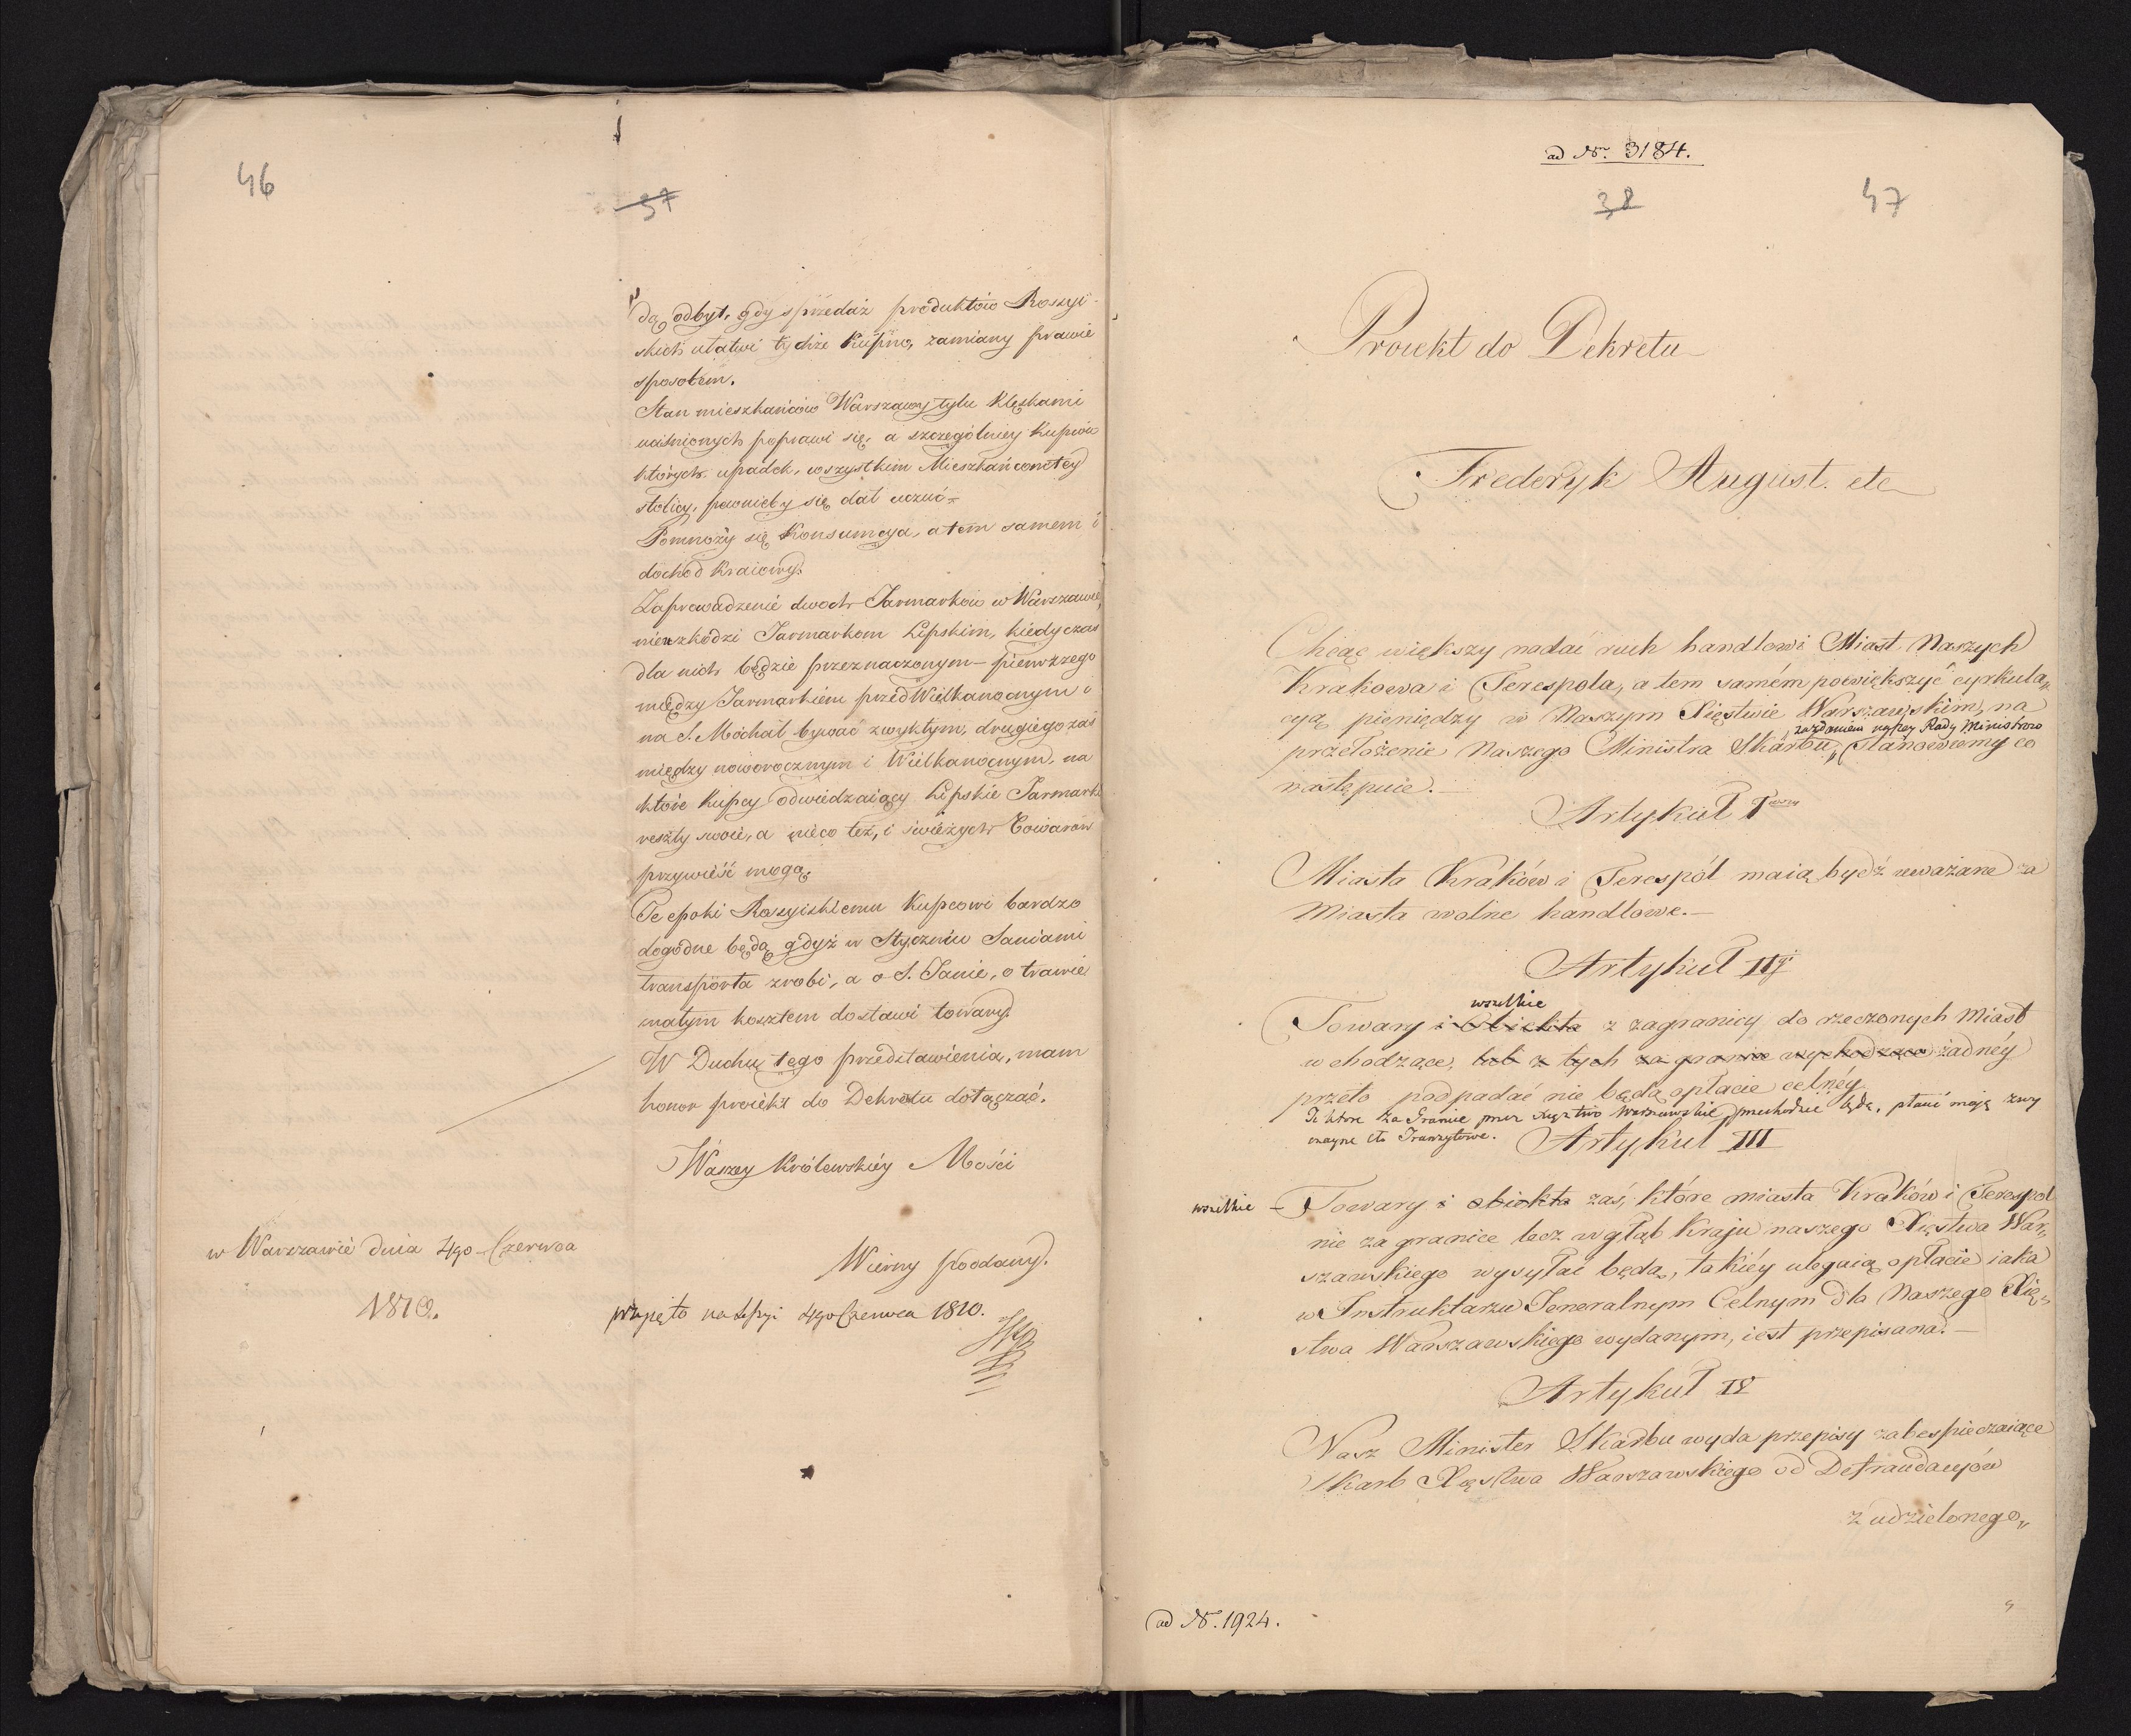 46
37
dą odbyt, gdy sprzedaż produktów Rossyi-
skich ułatwi tychże Kupno, zamiany prawie
sposobem.
Stan mieszkańców Warszawy tylu klęskami
uciśnionych poprawi się, a szczególniey Kupców
których upadek, wszystkim Mieszkańcom tey
stolicy, pewnieby się dał uczuć.
Pomnoży się Konsumcya, a tem samem i
dochód kraiowy.
Zaprowadzenie dwoch Jarmarków w Warszawie,
nieszkodzi Jarmarkom Lipskim, kiedy czas
dla nich będzie przeznaczonym – pierwszego
między Jarmarkiem przed Wielkanocnym i
na S. Michał bywać zwykłym, drugiego zaś
między noworocznym i Wielkanocnym, na
które Kupcy odwiedzaiący Lipskie Jarmarki
reszty swoie, a nieco też, i świeżych Towarów
przywieść mogą.
Te epoki Rossyiskiemu Kupcowi bardzo
dogodne będą gdyż w Styczniu Saniami
transporta zrobi, a o S. Janie, o trawie
małym kosztem dostawi towary.
W Duchu tego przedstawienia, mam
honor proiekt do Dekretu dołączać.
Waszey Królewskiéy Mości
w Warszawie dnia 4go Czerwca
1810.
Wierny poddany.
Wzięto na Sessyi 4go Czerwca 1810.
ad Nr. 3184.
38
47
Proiekt do Dekretu
Frederyk August. etc
Chcąc większy nadać ruch handlowi Miast Naszych
Krakowa i Terespola, a tem samém powiększyć cyrkula„
cyą pieniędzy w Naszym Xięstwie Warszawskim, na
za zdaniem naszey Rady Ministrow
przełożenie Naszego Ministra Skarbu, stanowiemy co
następuie. –
Artykuł I
Miasta Kraków i Terespól maią bydź uważane za
Miasta wolne handlowe. –
Artykuł IIgi
wszelkie
Towary i Obiekta z zagranicy do rzeczonych Miast
wchodzące, lub z tych za granice wychodzące żadnéy
przeto podpadać nie będą opłacie celnéy
Te które za Granice przez Xięztwo Warszawskie przechodzić będą, płacić mają zwy
czayne cło Tranzytowe.
Artykuł III
wszelkie – Towary i obiekta zaś, które miasta Kraków i Terespol
nie za granice lecz wgłąb Kraju naszego Xięstwa War„
szawskiego wysyłać będą, takiéy ulegaią opłacie iaka
w Instruktarzu Jeneralnym Celnym dla Naszego Xię„
stwa Warszawskiego wydanym, iest przepisana. –
Artykuł IV
Nasz Minister Skarbu wyda przepisy zabespieczaiące
Skarb Xięstwa Warszawskiego od Defraudacyów
z udzielonego„
ad Nr. 1924.